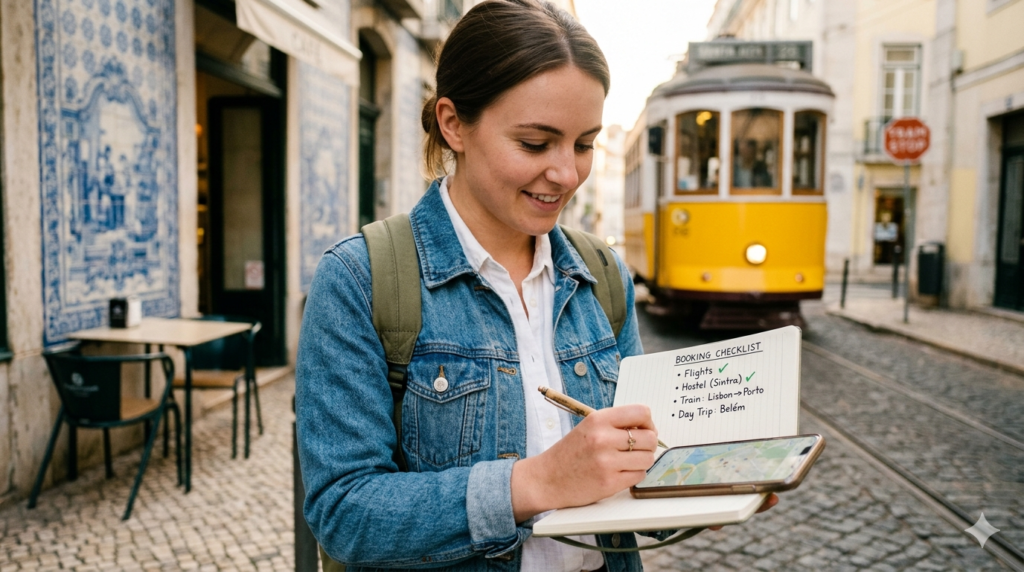 CAFÉ
TRAM
STOP
BOOKING CHECKLIST
• Flights ✓
• Hostel (Sintra) ✓
• Train: Lisbon→Porto
• Day Trip: Belém